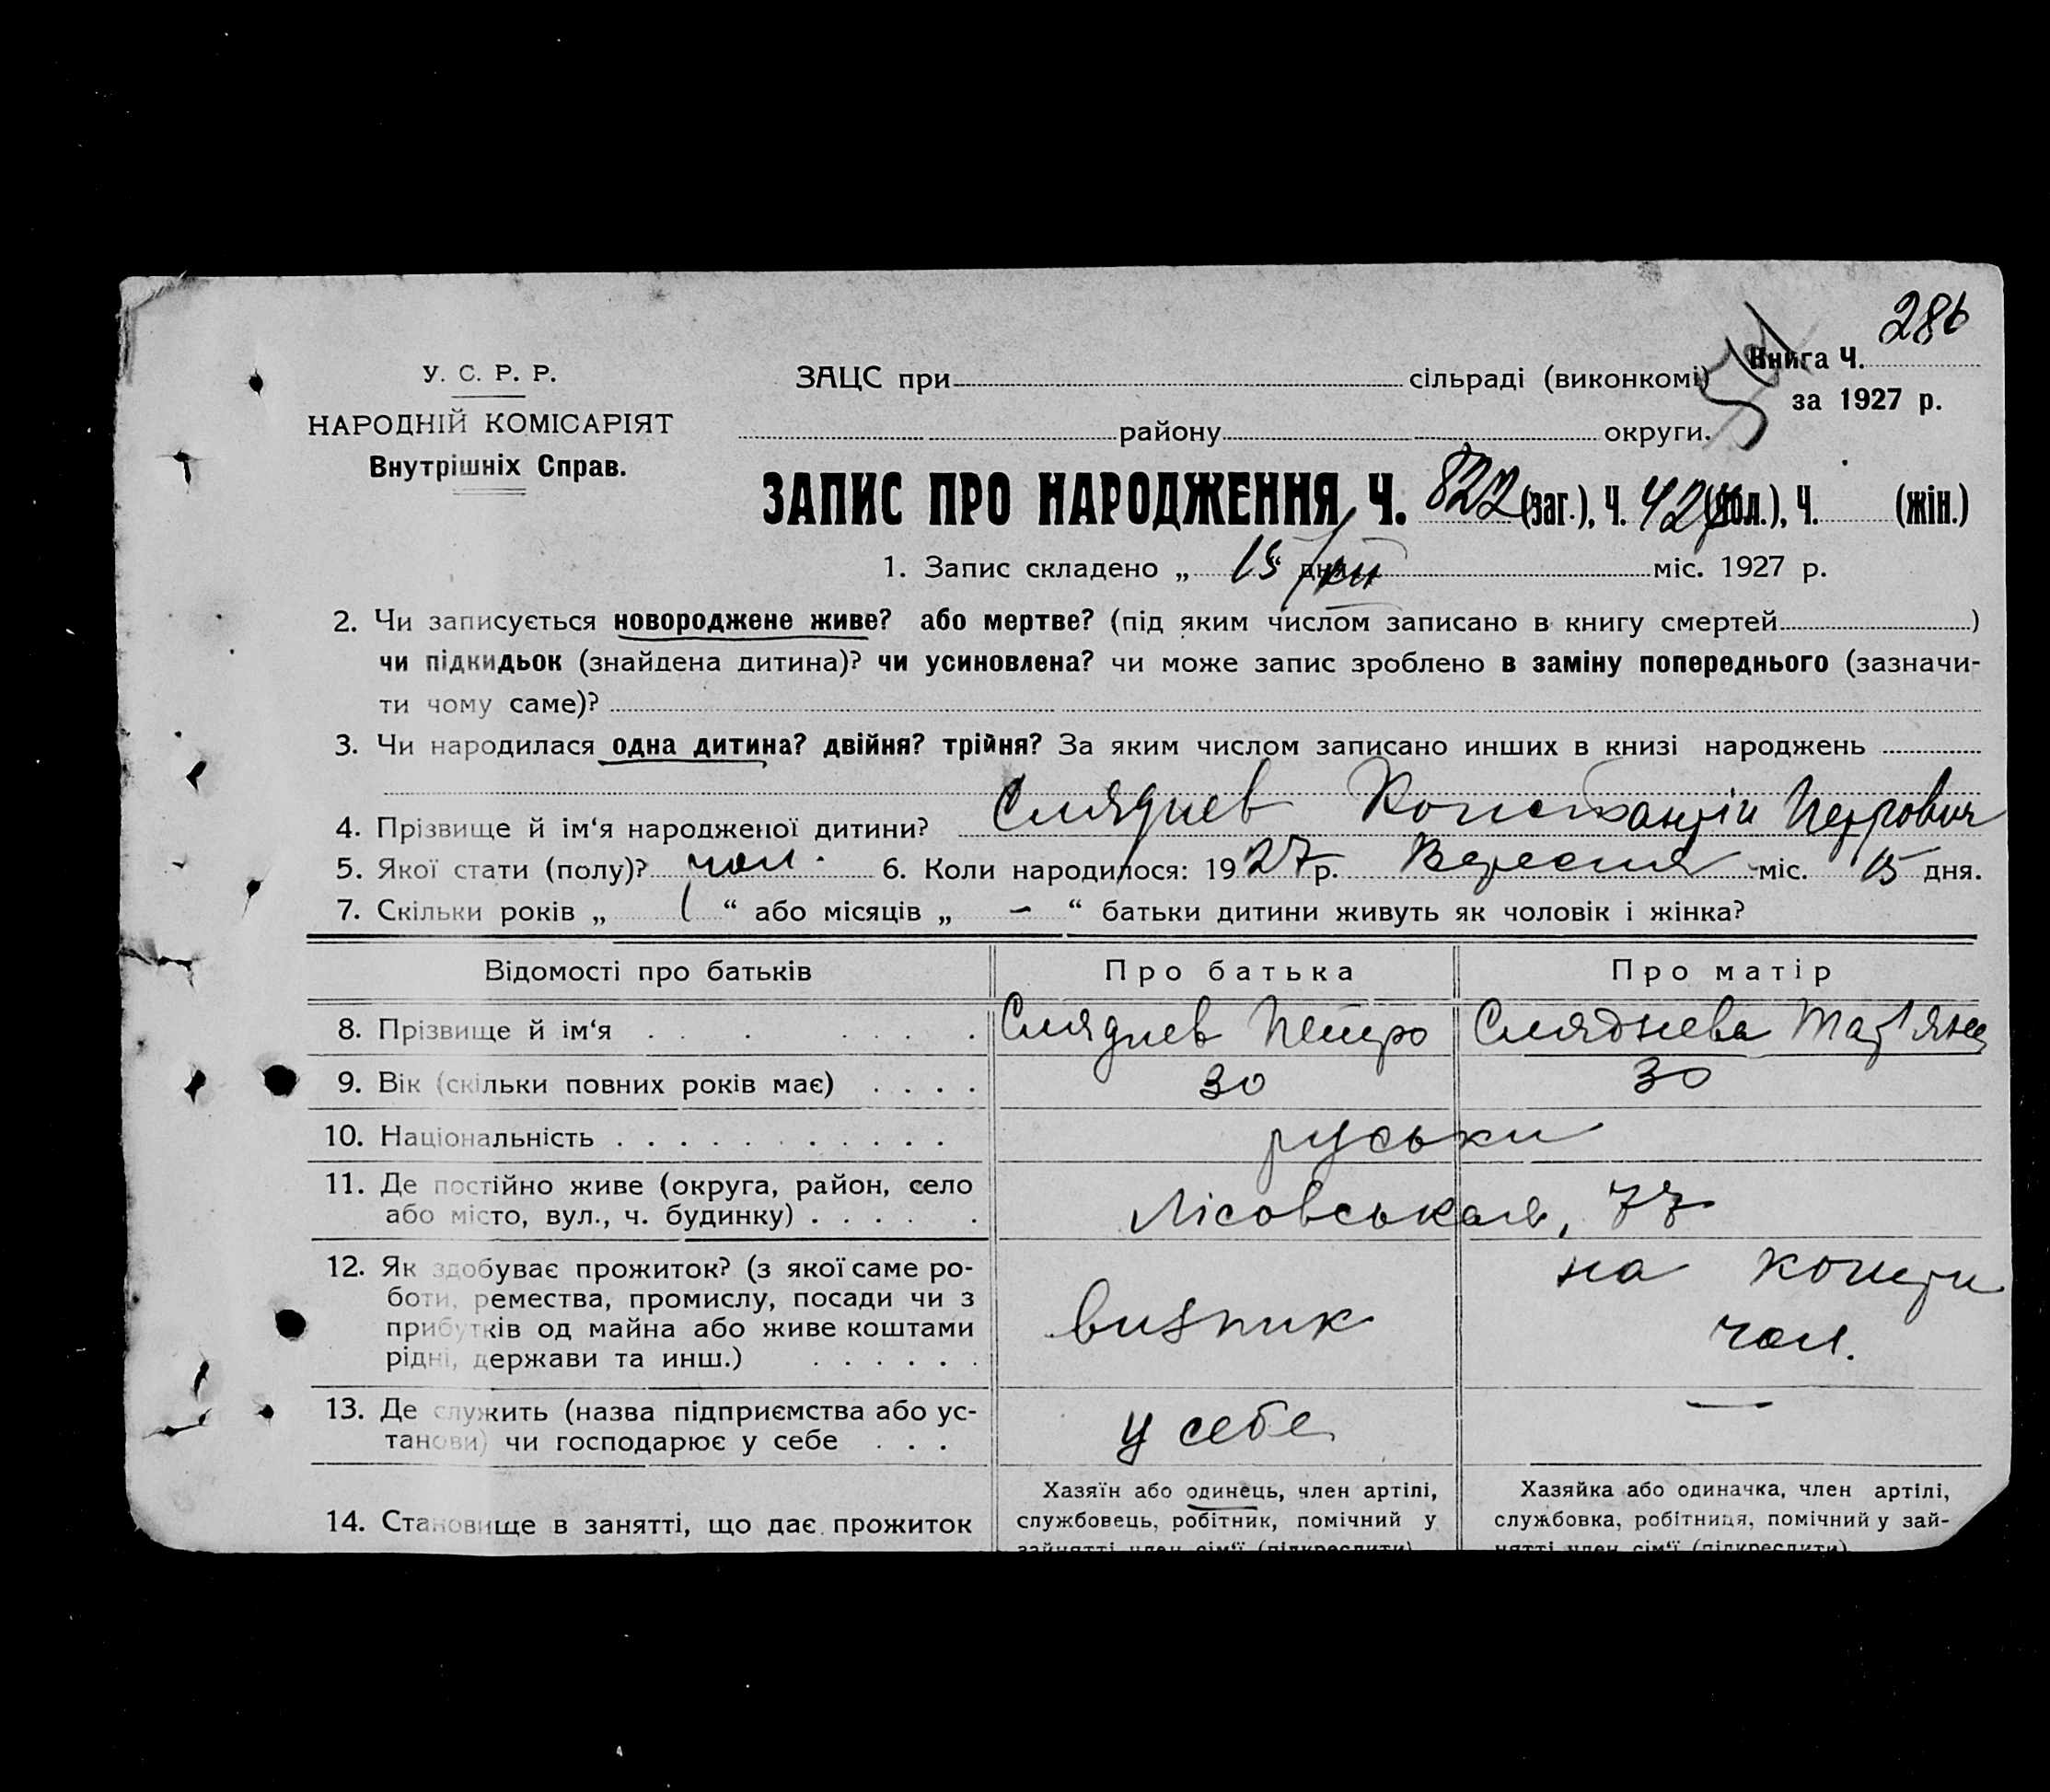 286
У. С. Р. Р.
ЗАЦС при сільраді (виконкомі)
Книга Ч.
за 1927 р.
НАРОДНІЙ КОМІСАРІЯТ
району округи.
Внутрішніх Справ.
ЗАПИС ПРО НАРОДЖЕННЯ, Ч. 822 (заг.), Ч. 42 (чол.), Ч. (жін.)
1. Запис складено „ 15 “ дня міс. 1927 р.
2. Чи записується новороджене живе? або мертве? (під яким числом записано в книгу смертей )
чи підкидьок (знайдена дитина)? чи усиновлена? чи може запис зроблено в заміну попереднього (зазначи-
ти чому саме)?
3. Чи народилася одна дитина? двійня? трійня? За яким числом записано инших в книзі народжень
4. Прізвище й ім‘я народженої дитини? Сляднев Константін Петрович
5. Якої стати (полу)? чол. 6. Коли народилося: 1927 р. Вересня міс. 15 дня.
7. Скільки років „ 1 “ або місяців „ – “ батьки дитини живуть як чоловік і жінка?
Відомості про батьків Про батька Про матір
8. Прізвище й ім‘я . . . . . . Сляднев Петро Сляднева Тат'яна
9. Вік (скільки повних років має) . . . . 30 30
10. Національність . . . . . . . . . . . руськи
11. Де постійно живе (округа, район, село
або місто, вул., ч. будинку) . . . . . Лісовськая, 77
12. Як здобуває прожиток? (з якої саме ро-
боти, ремества, промислу, посади чи з
прибутків од майна або живе коштами
рідні, держави та инш.) . . . . . .
визник
на кошти
чол.
13. Де служить (назва підприємства або ус-
танови) чи господарює у себе . . .
у себе —
14. Становище в занятті, що дає прожиток
Хазяїн або одинець, член артілі,
службовець, робітник, помічний у
зайнятті член сім‘ї (підкреслити)
Хазяйка або одиначка, член артілі,
службовка, робітниця, помічний у зай-
нятті член сім‘ї (підкреслити)